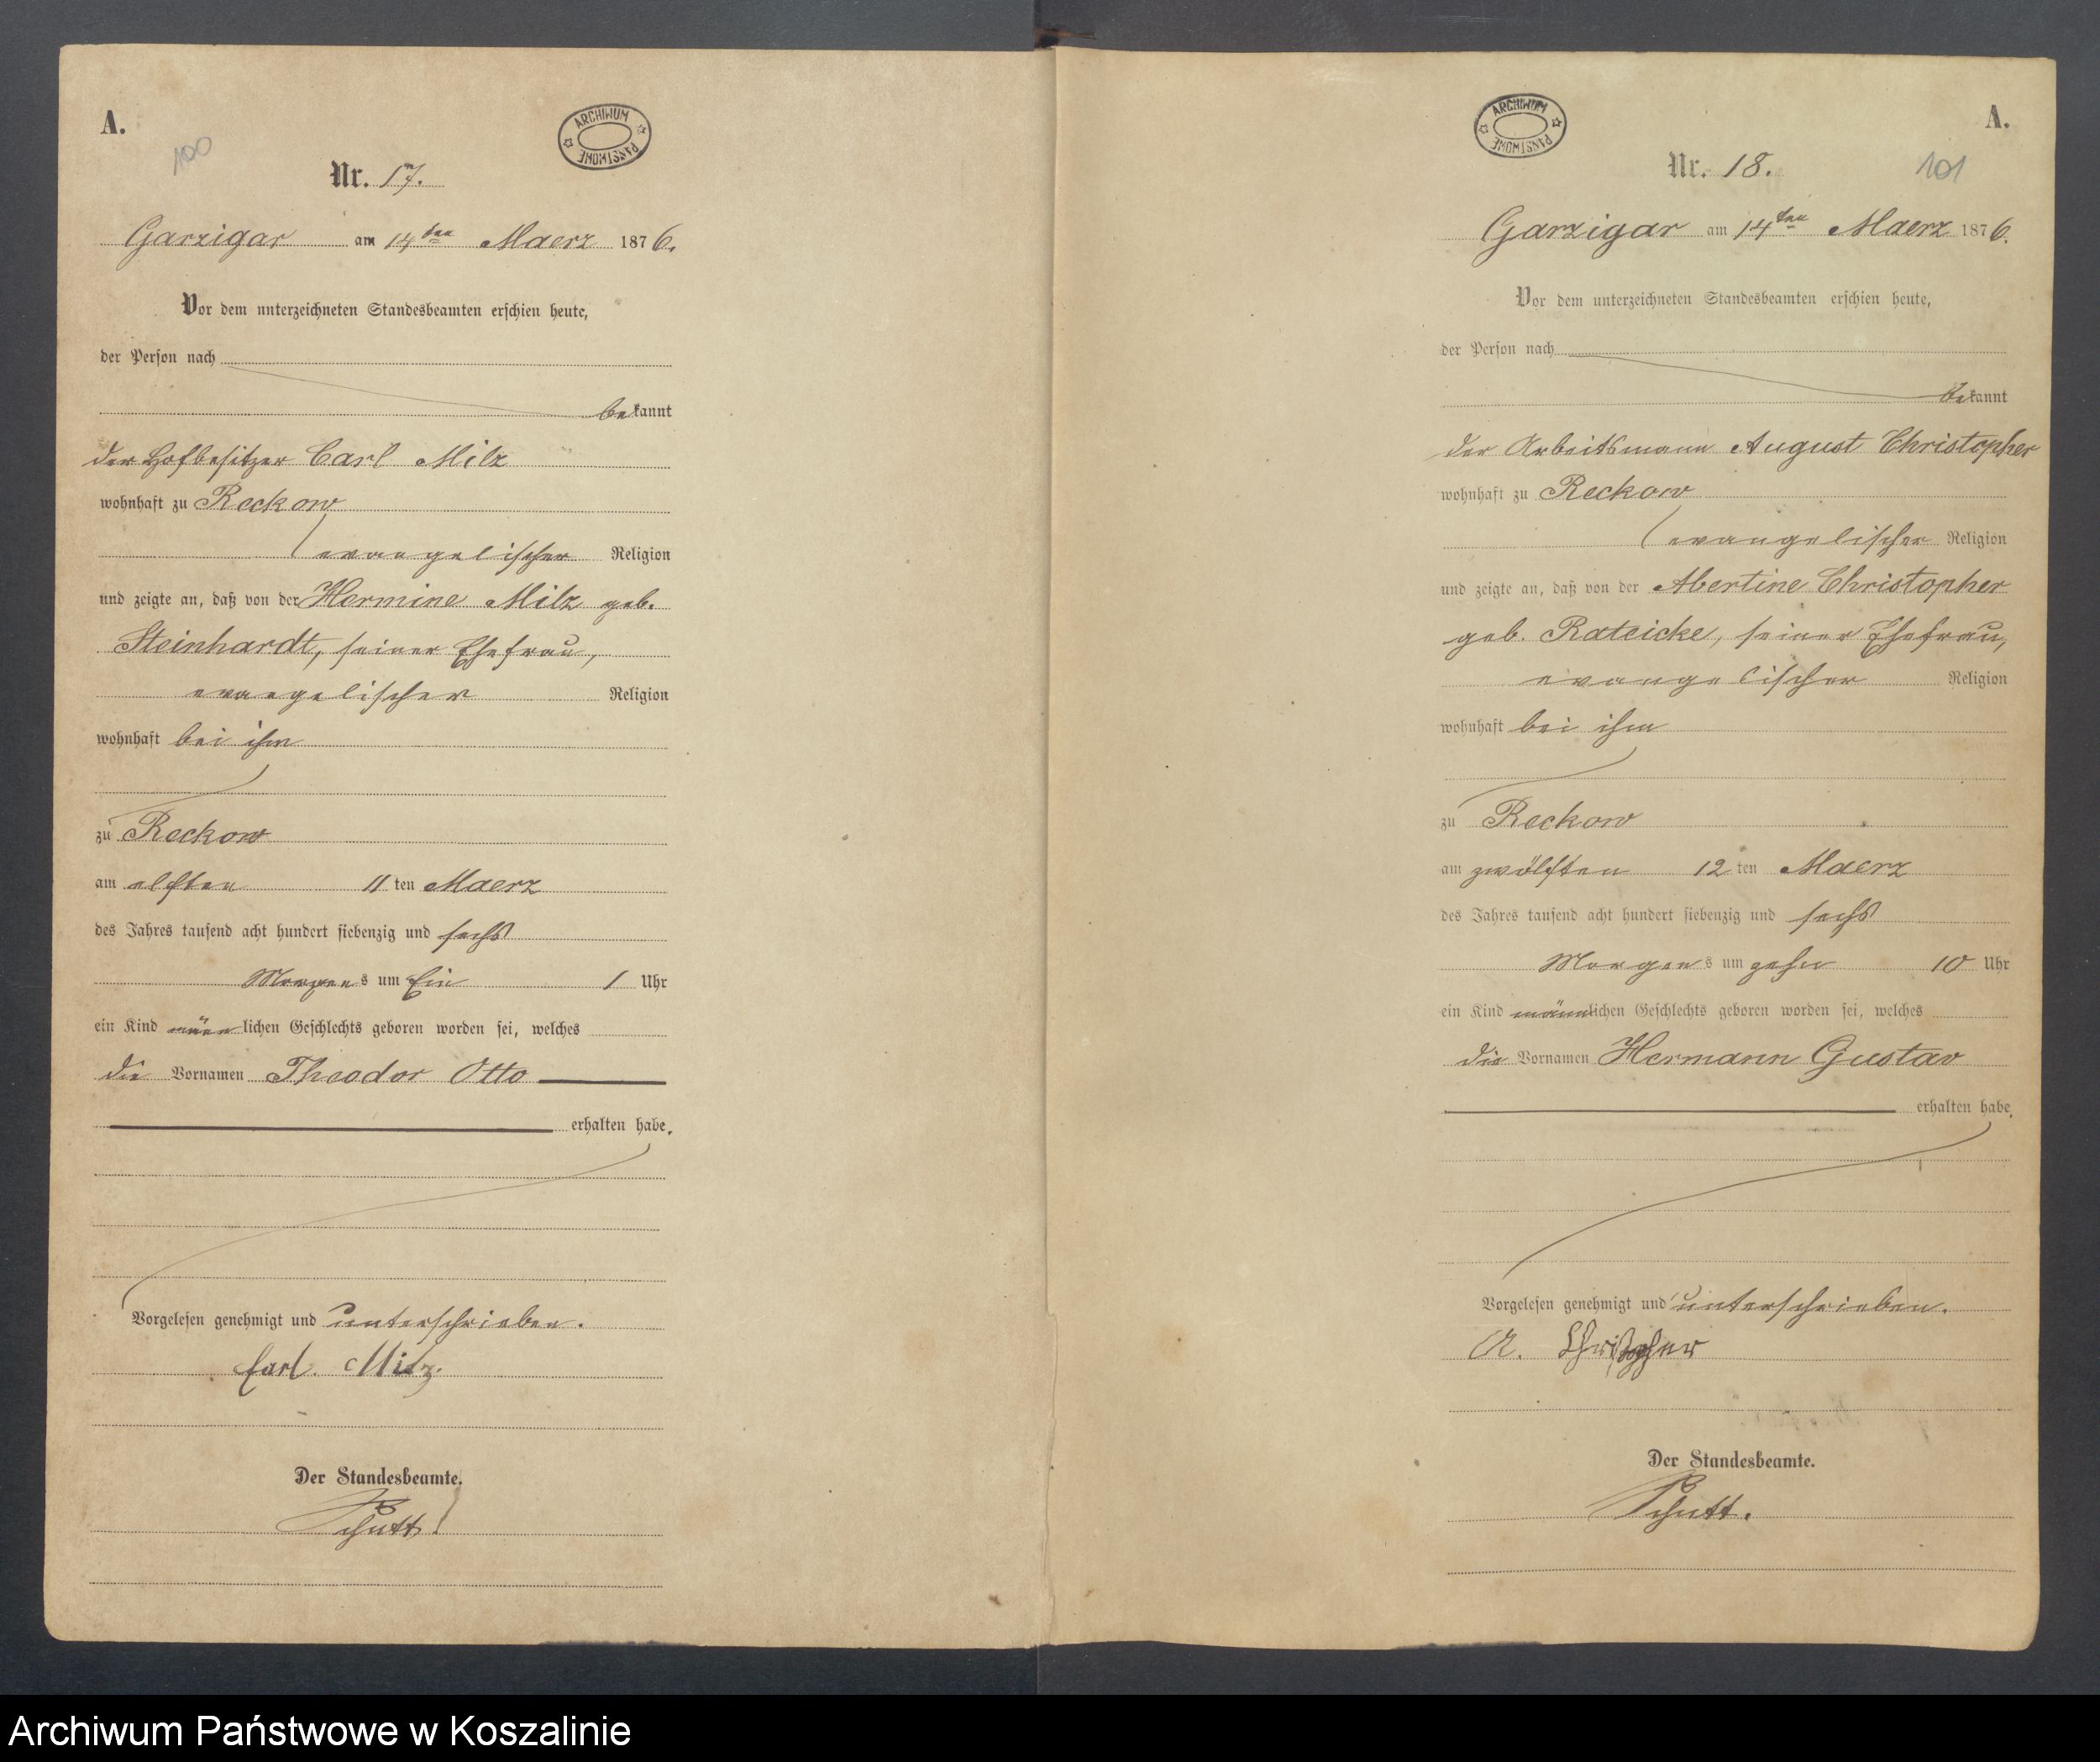 A.
100
ARCHIWUM
PAŃSTWOWE
Nr. 17.
Garzigar am 14ten Maerz 1876.
Vor dem unterzeichneten Standesbeamten erschien heute,
der Person nach
bekannt
der Hofbesitzer Carl Milz
wohnhaft zu Reckow
evangelischer Religion
und zeigte an, daß von der Hermine Milz geb.
Steinhardt, seiner Ehefrau,
evangelischer Religion
wohnhaft bei ihm
zu Reckow
am elften 11 ten Maerz
des Jahres tausend acht hundert siebenzig und sechs
Morgens um Ein 1 Uhr
ein Kind männlichen Geschlechts geboren worden sei, welches
die Vornamen Theodor Otto
erhalten habe.
Vorgelesen genehmigt und unterschrieben.
Carl. Milz.
Der Standesbeamte.
Schutt.
ARCHIWUM
PAŃSTWOWE
A.
Nr. 18.
101
Garzigar am 14ten Maerz 1876.
Vor dem unterzeichneten Standesbeamten erschien heute,
der Person nach
bekannt
der Arbeitsmann August Christopher
wohnhaft zu Reckow
evangelischer Religion
und zeigte an, daß von der Abertine Christopher
geb. Rateicke, seiner Ehefrau,
evangelischer Religion
wohnhaft bei ihm
zu Reckow
am zwölften 12 ten Maerz
des Jahres tausend acht hundert siebenzig und sechs
Morgens um zehn 10 Uhr
ein Kind männlichen Geschlechts geboren worden sei, welches
die Vornamen Hermann Gustav
erhalten habe.
Vorgelesen genehmigt und unterschrieben.
A. Christopher
Der Standesbeamte.
Schutt.
Archiwum Państwowe w Koszalinie